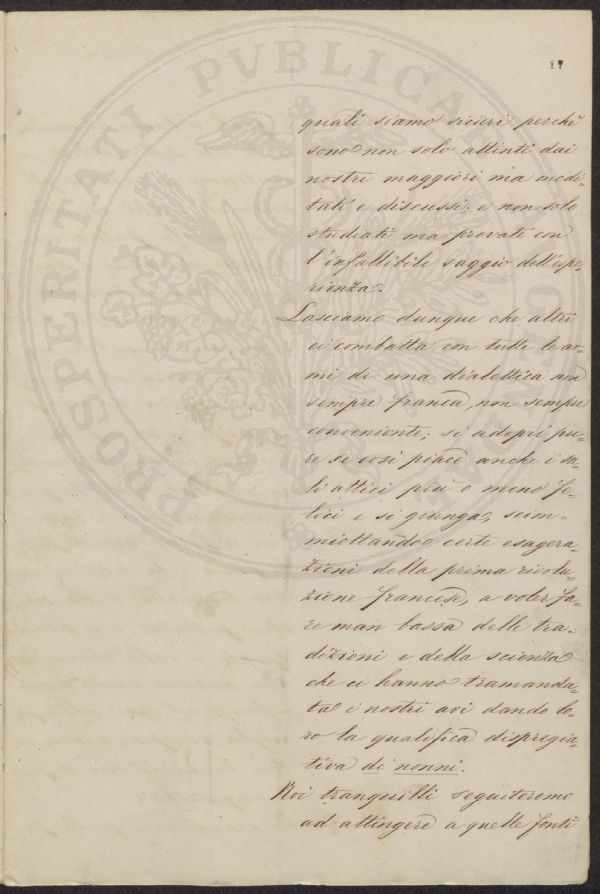 17
quali siamo sicuri perchè
sono non solo attinti dai
nostri maggiori ma medi-
tati e discussi, e non solo
studiati ma provati con
l'infallibile saggio dell'espe-
rienza.
Lasciamo dunque che altri
ci combatta con tutte le ar-
mi di una dialettica non
sempre franca, non sempre
conveniente; si adopri pu-
re se così piace anche i sa-
li attici più o meno fe-
lici e si giunga, scim-
miottando certe esagera-
zioni della prima rivolu-
zione francese, a voler fa-
re man bassa delle tra-
dizioni e della scienza
che ci hanno tramanda-
ta i nostri avi dando lo-
ro la qualifica dispregia-
tiva di nonni.
Noi tranquilli seguiteremo
ad attingere a quelle fonti
PROSPERITATI PVBLICAE